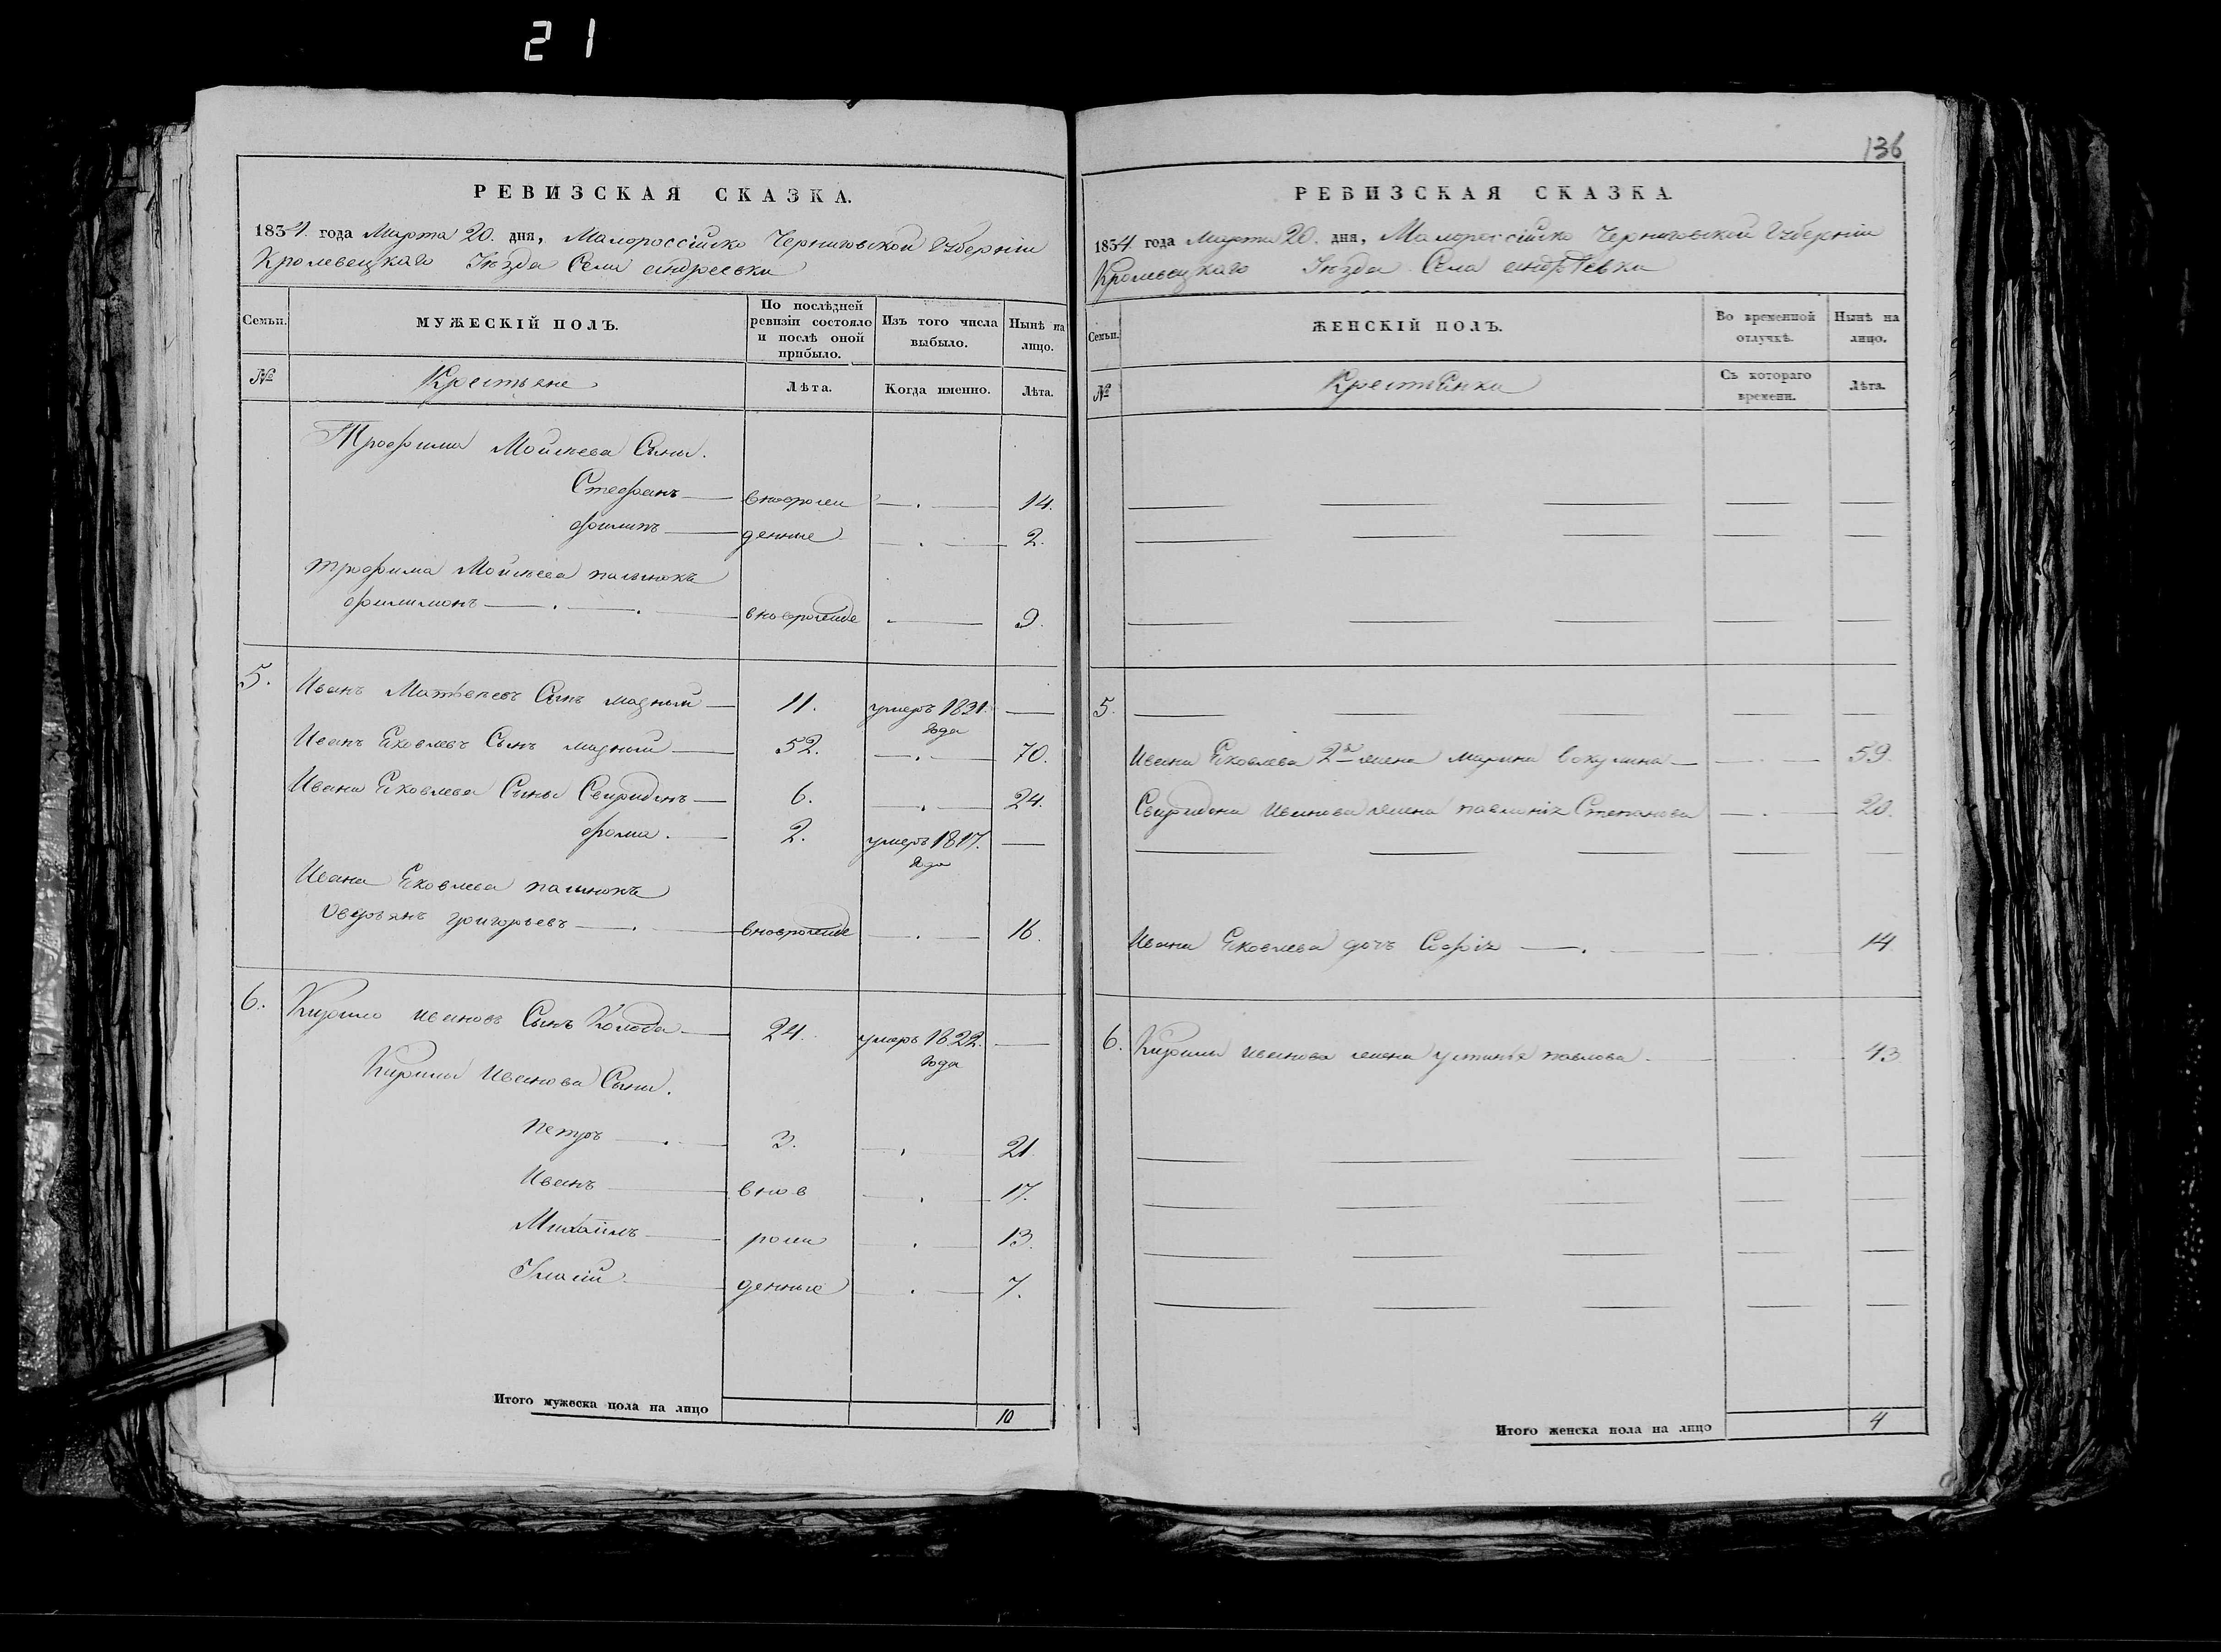 21
136
РЕВИЗСКАЯ СКАЗКА.
1834. года Марта 20. дня, Малороссійско Черниговской Губерніи
Кролевецкаго Уѣзда Села андреевки
Семьи.
МУЖЕСКІЙ ПОЛЪ.
По послѣдней ревизіи состояло и послѣ оной прибыло.
Изъ того числа выбыло.
Нынѣ на лицо.
№
Крестьяне
Лѣта.
Когда именно.
Лѣта.
Трофима Мойсеева Сыны.
Стефанъ вноврож 14.
филипъ денные 2.
трофима Мойсеева пасынокъ
филимонъ 9.
5. Иванъ Матвеевъ Сынъ 11. умеръ 1831. года
Иванъ Яковлевъ Сынъ 52. 70.
Ивана Яковлева Сыны Свиридонъ 6. 24.
фома. 2. умеръ 1817. года
Ивана Яковлева пасынокъ
Оверьянъ григорьевъ 16.
6. Кирило ивановъ Сынъ Колода 24. умеръ 1822. года
Кирилы Иванова Сыны.
Петръ 3. 21.
Иванъ внов 17.
Михаилъ рож 13.
денные 7.
Итого мужеска пола на лицо 10
РЕВИЗСКАЯ СКАЗКА.
1834. года Марта 20. дня, Малороссійско Черниговской Губерніи
Кролевецкаго Уѣзда Села андреевки
Семьи.
ЖЕНСКІЙ ПОЛЪ.
Во временной отлучкѣ.
Нынѣ на лицо.
№
Крестьянки
Съ котораго времени.
Лѣта.
5.
Ивана Яковлева 2я жена марина вакулина 59.
Свиридона Иванова жена павлагия Степанова 20.
Ивана Яковлева дочь Софія 14
6. Кирилы иванова жена устинья павлова 43
Итого женска пола на лицо 4